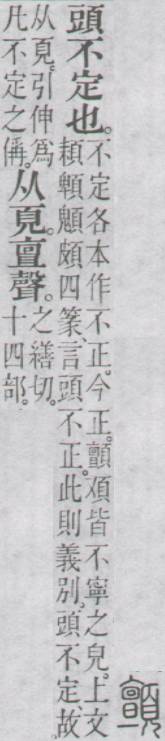 顫
頭不定也。
不定各本作不正。今正。顫皆不寧之皃。上文
頗四篆、言頭不正。此則義別。頭不定、故
从頁。引伸爲
凡不定之偁。
从頁亶聲。
之繕切。
十四部。